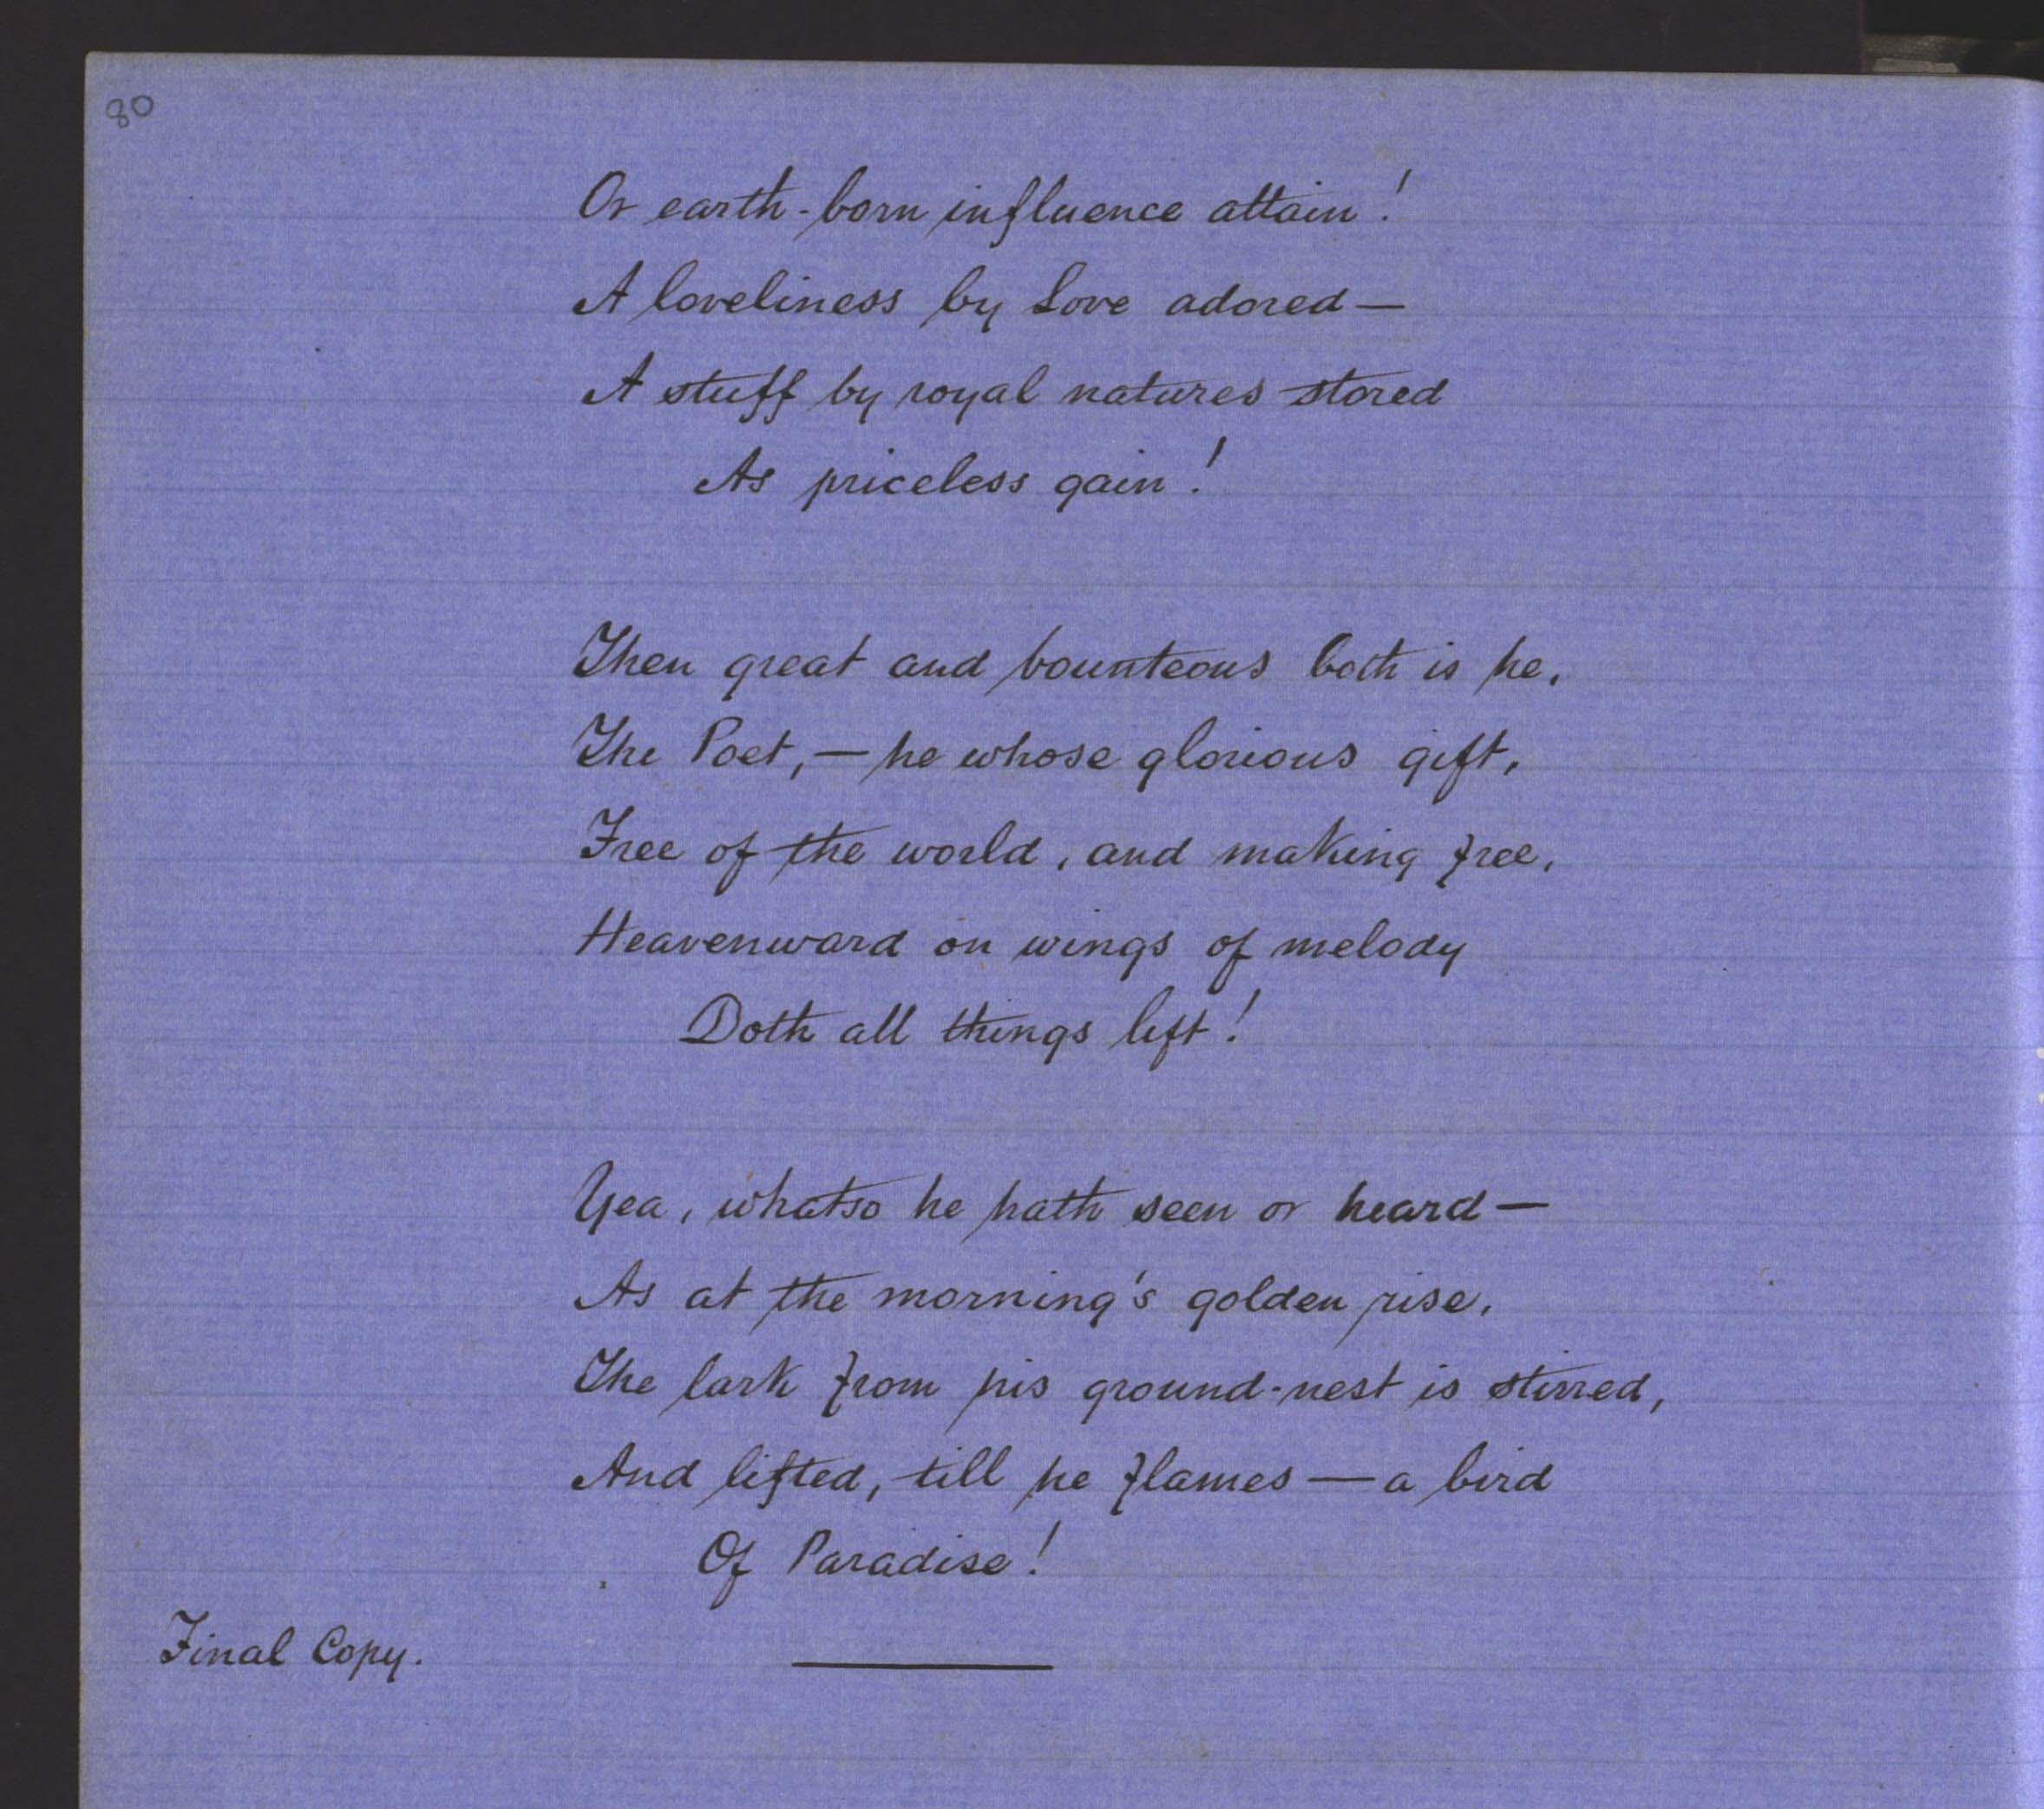 80
Or earth-born influence attain!
A loveliness by Love adored—
A stuff by royal natures stored
As priceless gain!
Then great and bounteous both is he,
The Poet,— he whose glorious gift,
Free of the world, and making free,
Heavenward on wings of melody
Doth all things lift!
Yea, whatso he hath seen or heard—
As at the morning's golden rise,
The lark from his ground-nest is stirred,
And lifted, till he flames — a bird
Of Paradise!
Final Copy.